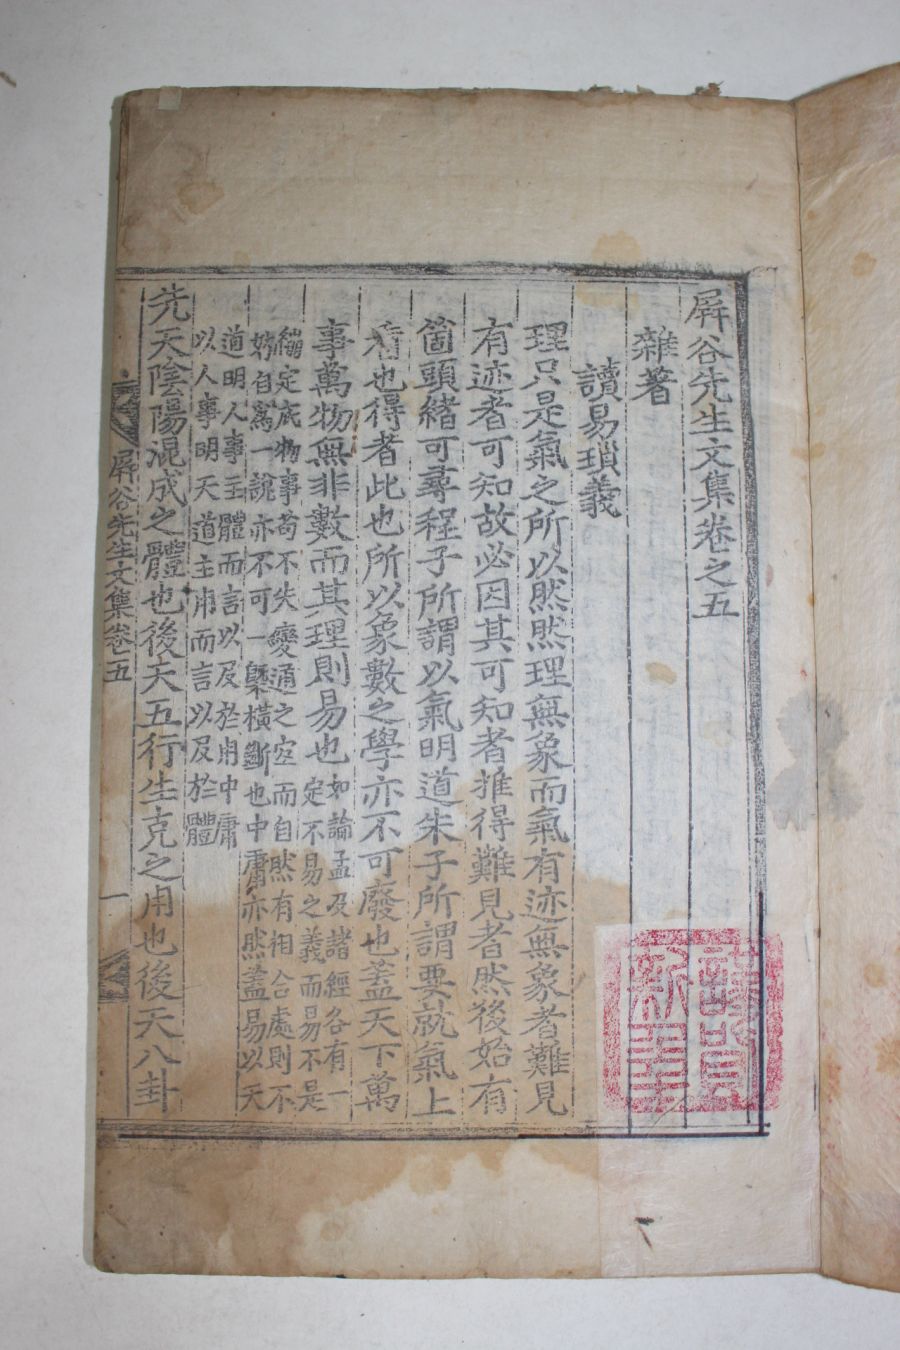 屛谷先生文集卷之五
雜著
讀易瑣義
理只是氣之所以然然理無象而氣有迹無象者難見
有迹者可知故必因其可知者推得難見者然後始有
箇頭緖可尋程子所謂以氣明道朱子所謂要就氣上
看也得者此也所以象數之學亦不可廢也蓋天下萬
事萬物無非數而其理則易也如論孟及諸經各有一
定不易之義而易不是
繃定底物事苟不失變通之宜而自然有相合處則不
妨自爲一說亦不可一槩橫斷也中庸亦然蓋易以天
道明人事主體而言以及於用中庸
以人事明天道主用而言以及於體
先天陰陽混成之體也後天五行生克之用也後天八卦
屛谷先生文集卷五
一